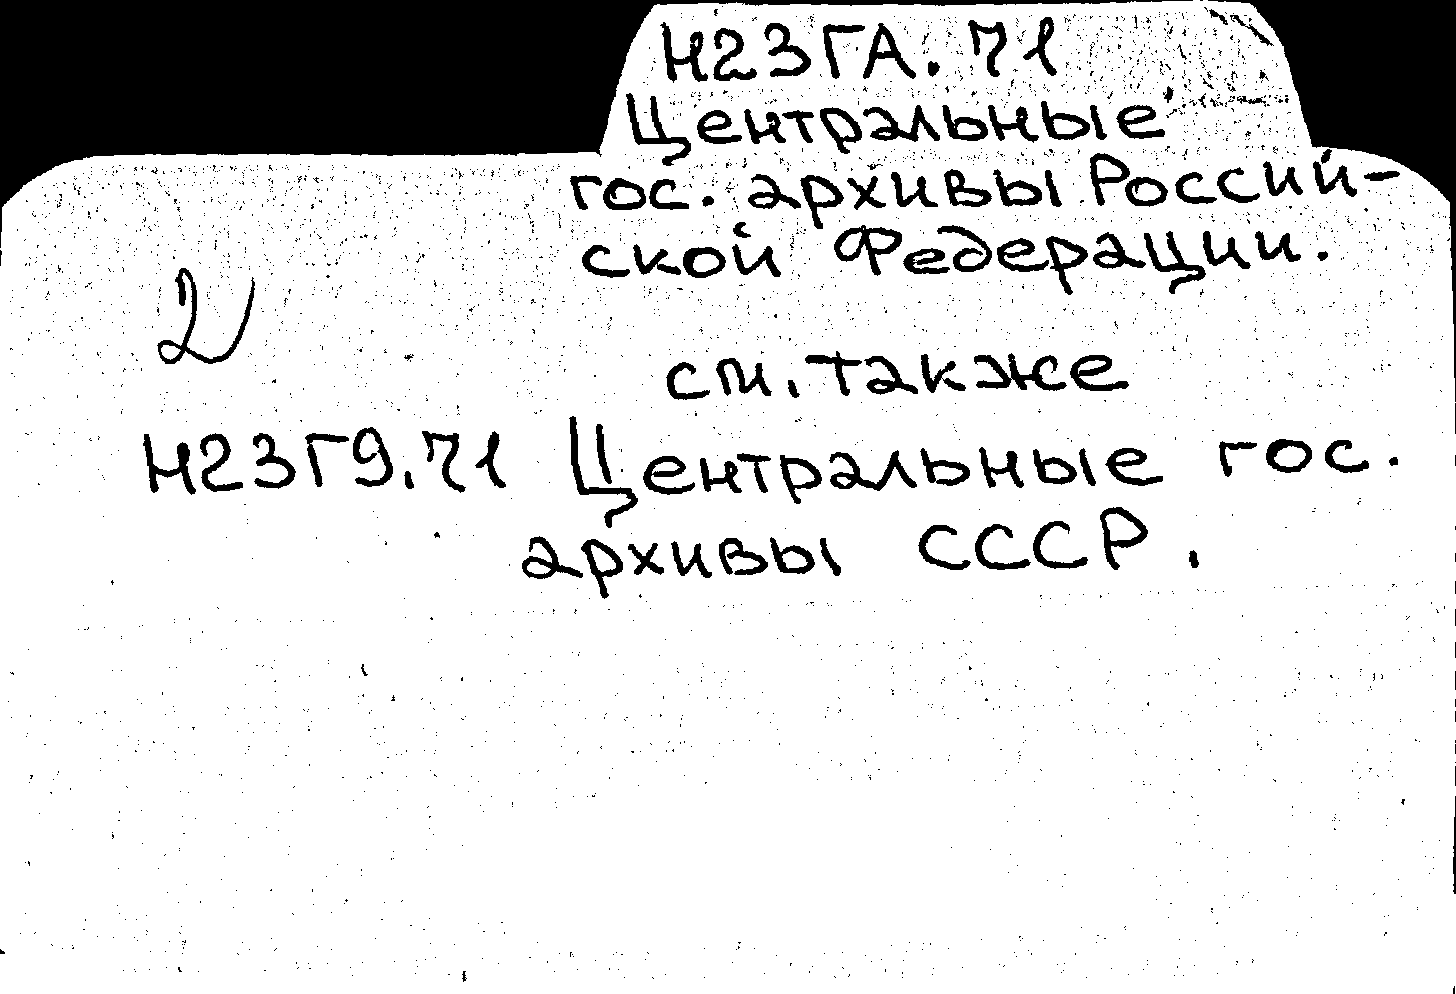 Н23ГА.71
Центральные
гос. архивы Россий-
ской Федерации.
см. также
Н23Г9.71 Центральные гос.
архивы СССР.